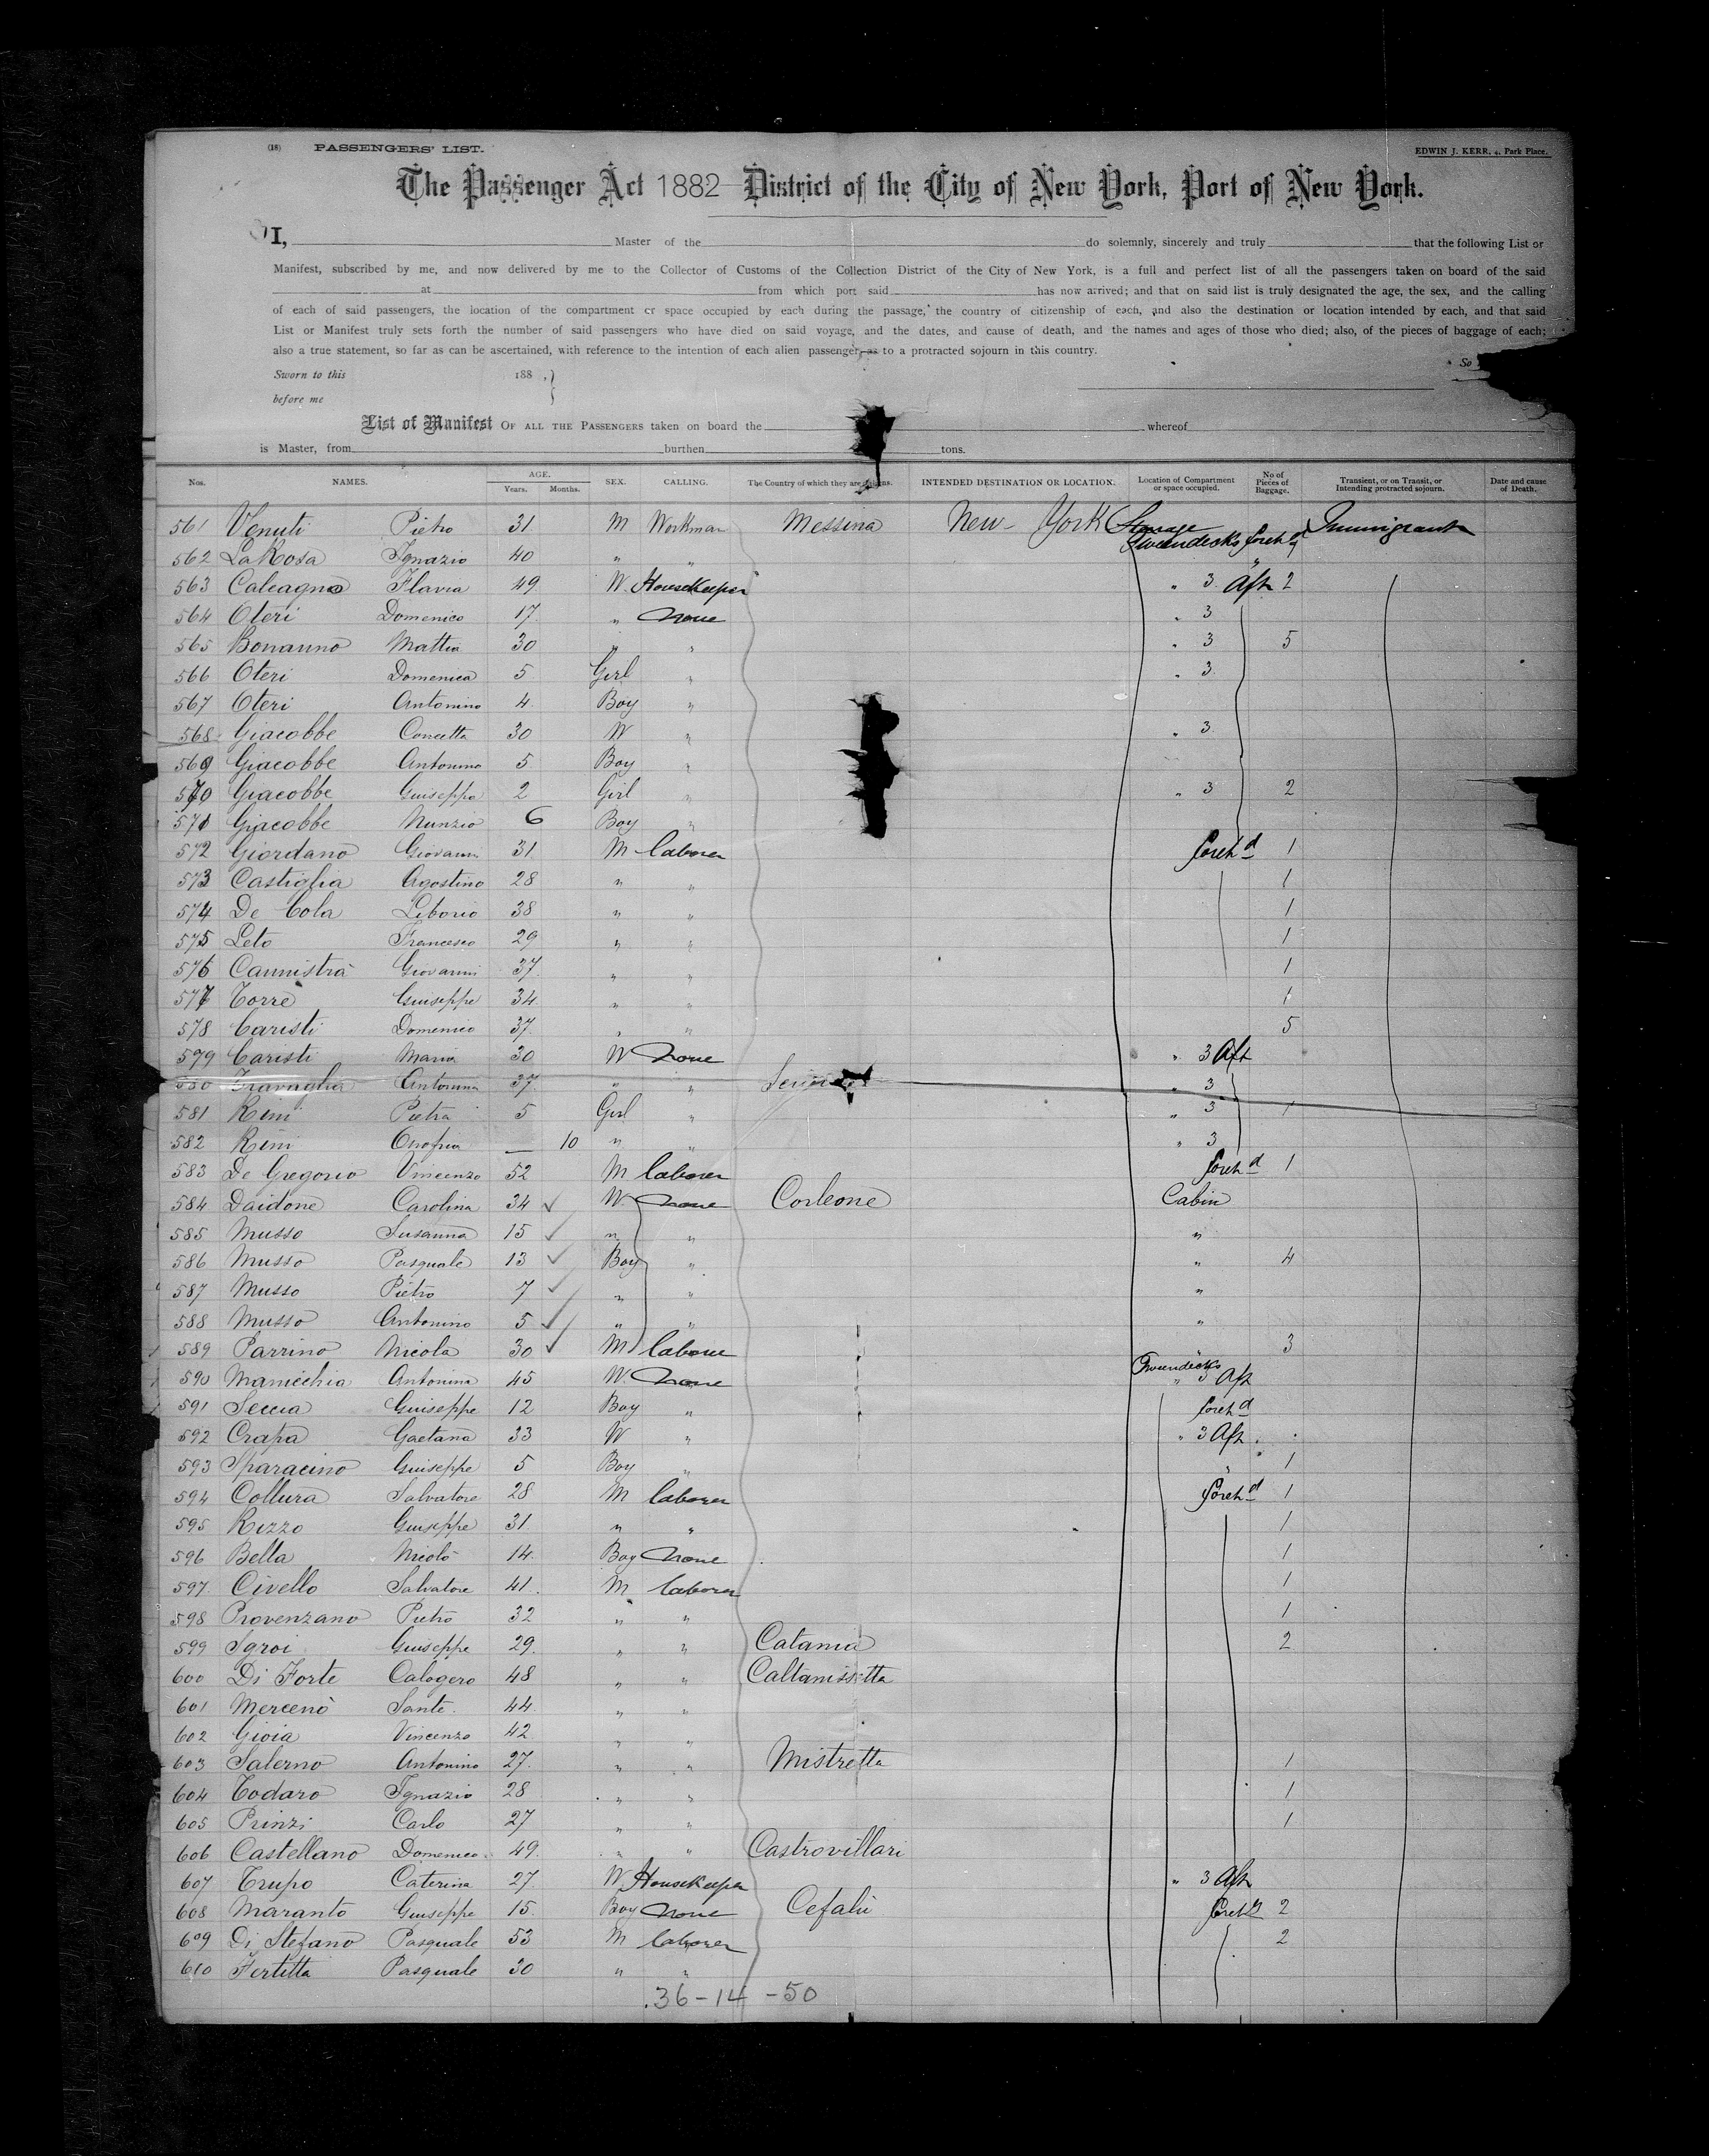 (18) PASSENGERS' LIST. EDWIN J. KERR, 4, Park Place.
The Passenger Act 1882 District of the City of New York, Port of New York.
I, Master of the do solemnly, sincerely and truly that the following List or
Manifest, subscribed by me, and now delivered by me to the Collector of Customs of the Collection District of the City of New York, is a full and perfect list of all the passengers taken on board of the said
at from which port said has now arrived; and that on said list is truly designated the age, the sex, and the calling
of each of said passengers, the location of the compartment or space occupied by each during the passage, the country of citizenship of each, and also the destination or location intended by each, and that said
List or Manifest truly sets forth the number of said passengers who have died on said voyage, and the dates, and cause of death, and the names and ages of those who died; also, of the pieces of baggage of each;
also a true statement, so far as can be ascertained, with reference to the intention of each alien passenger, as to a protracted sojourn in this country.
So
Sworn to this 188 ,}
before me
List of Manifest OF ALL THE PASSENGERS taken on board the whereof
is Master, from burthen tons.
Nos. NAMES. AGE. Years. Months. SEX. CALLING. The Country of which they are citizens. INTENDED DESTINATION OR LOCATION. Location of Compartment or space occupied. No of Pieces of Baggage. Transient, or on Transit, or Intending protracted sojourn. Date and cause of Death.
561 Venuti Pietro 31 M Workman Messina New York Steerage Tweendecks foreh d Immigrant
562 La Rosa Ignazio 40 " "
563 Calcagno Flavia 49 W. Housekeeper " 3 Aft 2
564 Oteri Domenico 17 " None " 3
565 Bonanno Mattia 30 " " " 3 5
566 Oteri Domenica 5 Girl " " 3
567 Oteri Antonino 4 Boy "
568 Giacobbe Concetta 30 W " " 3
569 Giacobbe Antonino 5 Boy "
570 Giacobbe Guiseppa 2 Girl " " 3 2
571 Giacobbe Nunzio 6 Boy "
572 Giordano Giovanni 31 M laborer foreh d 1
573 Castiglia Agostino 28 " " 1
574 De Cola Liborio 38 " " 1
575 Leto Francesco 29 " " 1
576 Cannistrà Giovanni 37 " " 1
577 Torre Guiseppe 34 " " 1
578 Caristi Domenico 37 " " 5
579 Caristi Maria 30 W None " 3 Aft
580 Travaglia Antonina 37 " " " 3
581 Rini Pietra 5 Girl " " 3 1
582 Rini Onofria — 10 " " " 3
583 De Gregorio Vincenzo 52 M laborer foreh d 1
584 Daidone Carolina 34 ✓ W. None Corleone Cabin
585 Musso Susanna 15 ✓ " " "
586 Musso Pasquale 13 ✓ Boy " " 4
587 Musso Pietro 7 ✓ " " "
588 Musso Antonino 5 ✓ " " "
589 Parrino Nicola 30 ✓ M laborer " 3
590 Manicchia Antonina 45 W. None Tweendecks " 3 Aft
591 Seccia Guiseppe 12 Boy " foreh d
592 Crapa Gaetana 33 W " " 3 Aft
593 Sparacino Guiseppe 5 Boy " " 1
594 Collura Salvatore 28 M laborer foreh d 1
595 Rizzo Guiseppe 31 " " 1
596 Bella Nicolò 14 Boy None 1
597 Civello Salvatore 41 M laborer 1
598 Provenzano Pietro 32 " " 1
599 Sgroi Guiseppe 29 " " Catania 2
600 Di Forte Calogero 48 " " Caltanissitta
601 Mercenò Sante 44 " "
602 Gioia Vincenzo 42 " "
603 Salerno Antonino 27 " " Mistretta 1
604 Todaro Ignazio 28 " " 1
605 Prinzi Carlo 27 " " 1
606 Castellano Domenico 49 " " Castrovillari
607 Trupo Caterina 27 W. Housekeeper " 3 Aft
608 Maranto Guiseppe 15 Boy None Cefalù foreh d 2
609 Di Stefano Pasquale 53 M laborer 2
610 Fertitta Pasquale 30 " "
36-14 -50